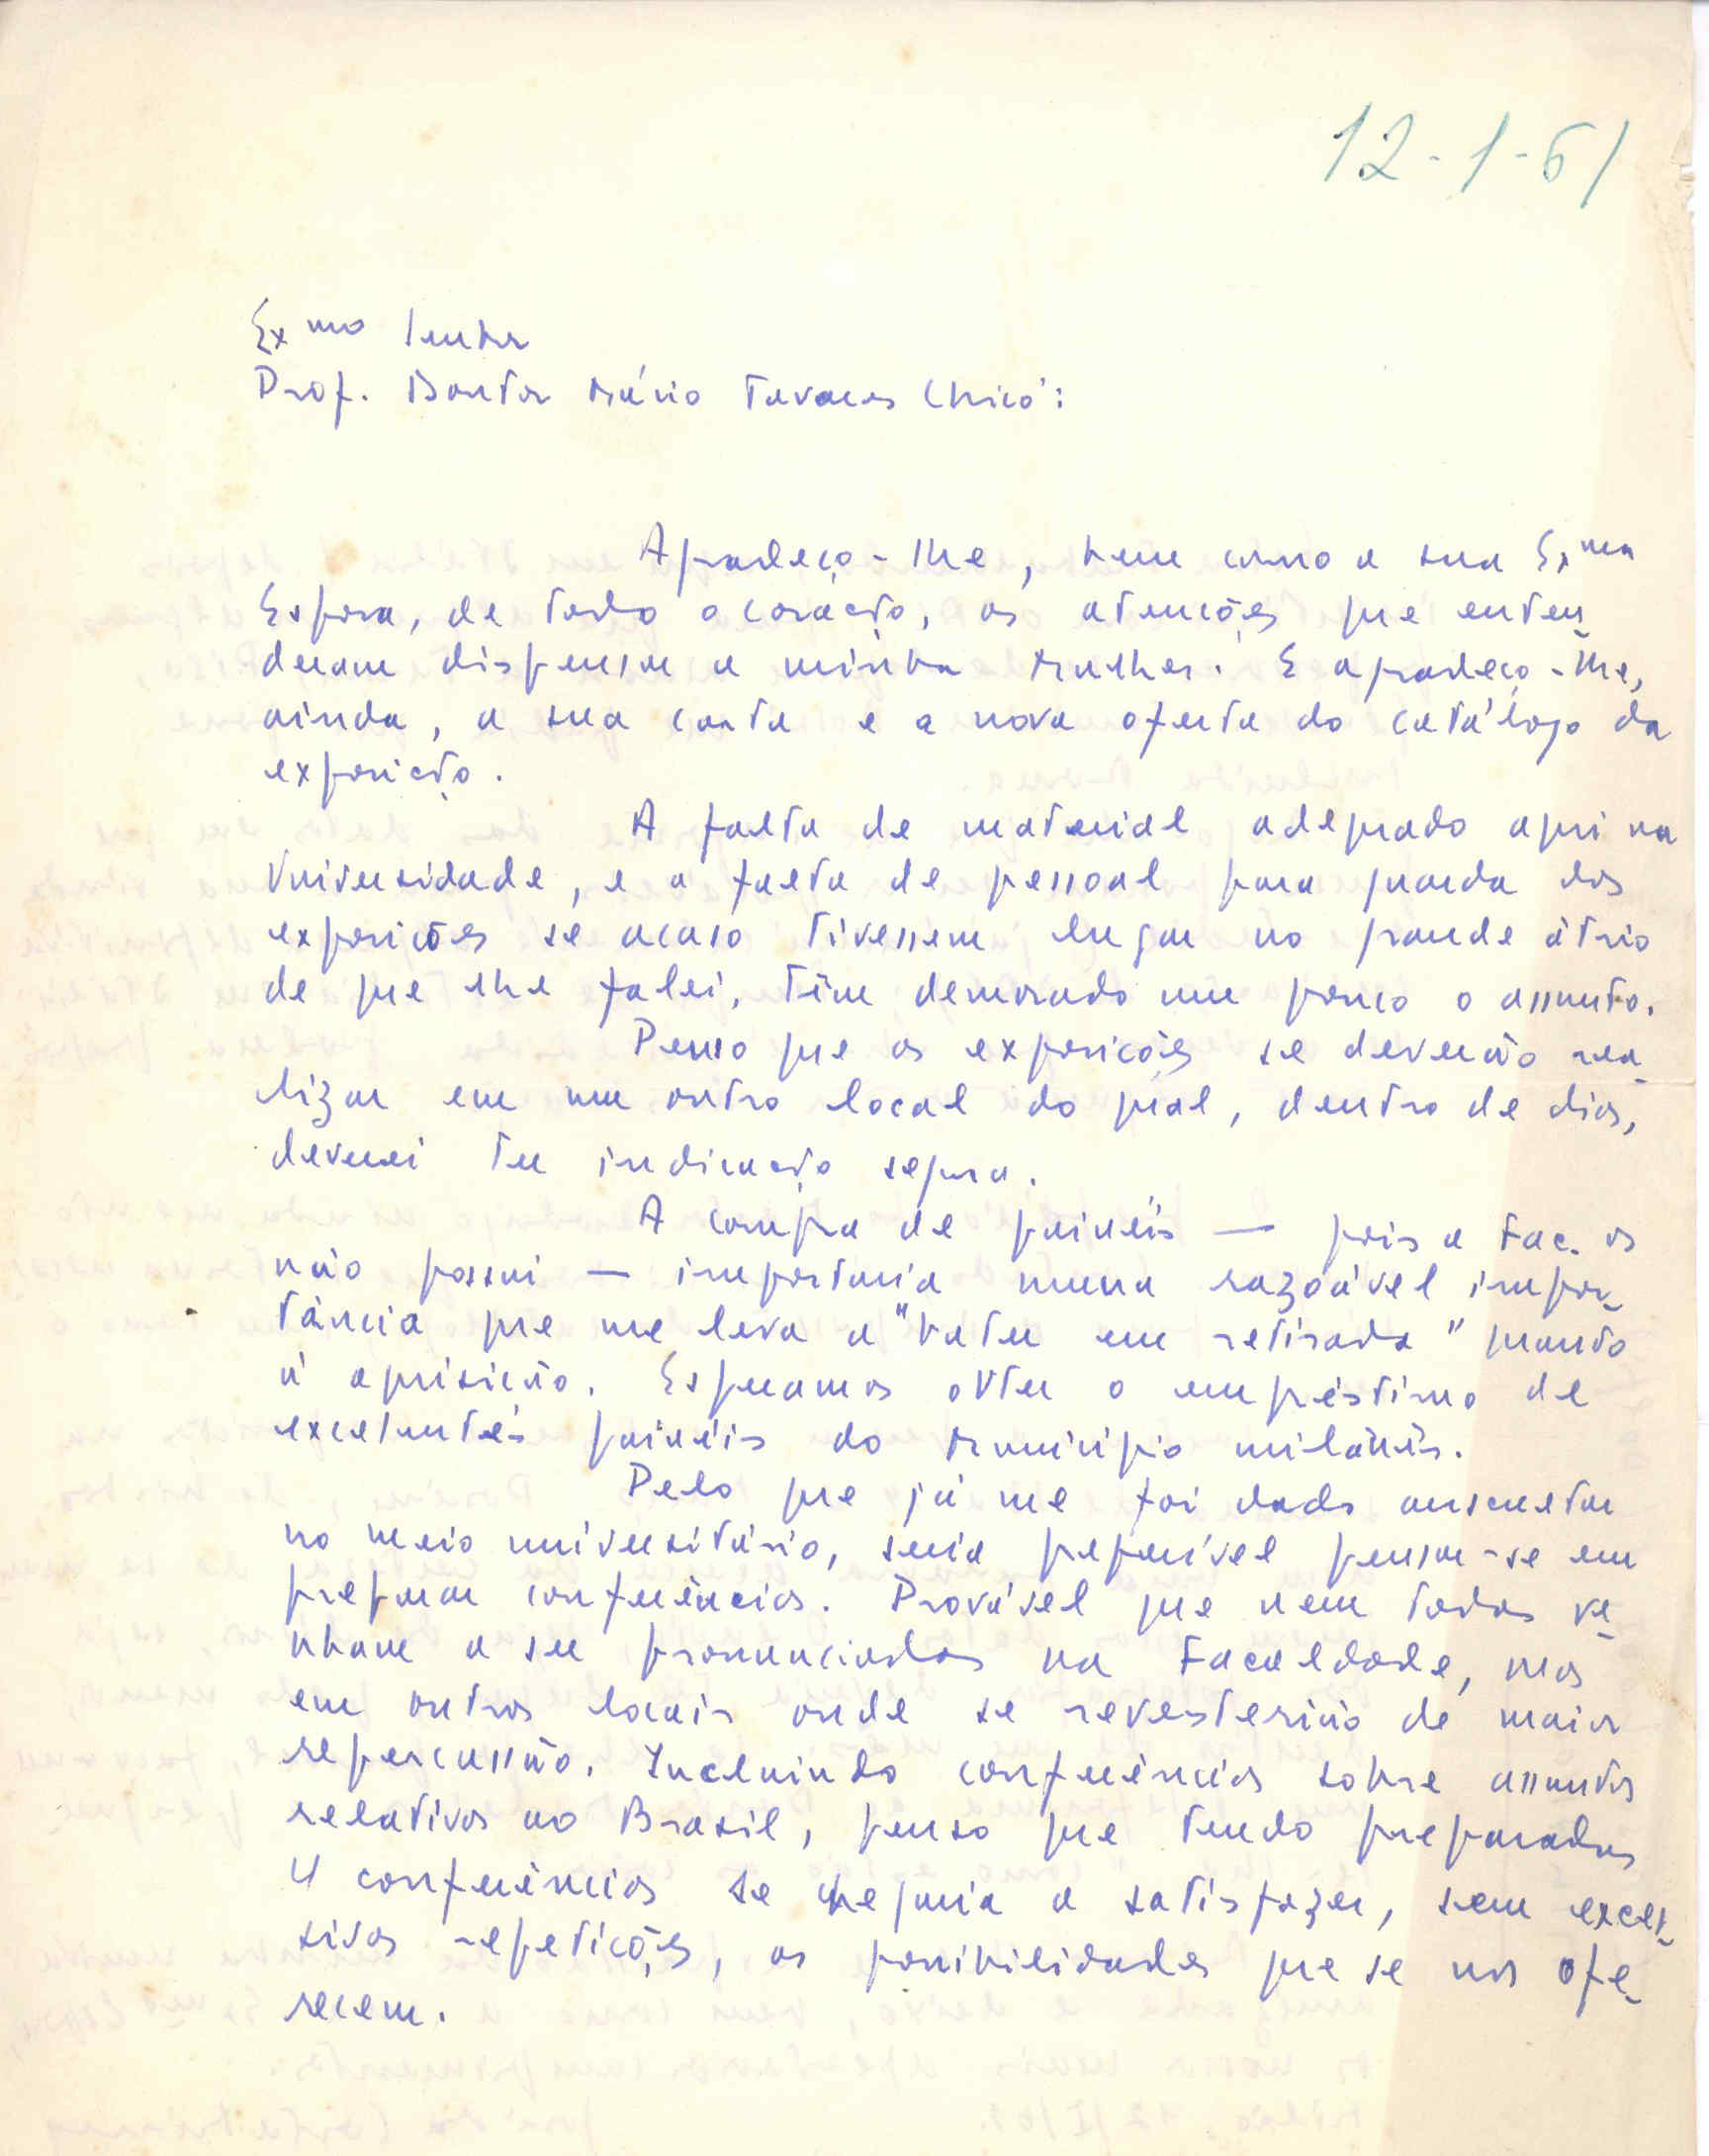 12-1-61
Exmo Senhor
Prof. Doutor Mário Tavares Chicó:
Agradeço-lhe, bem como a sua Exma
Esposa, de todo o coração, as atenções que enten-
deram dispensar a minha Mulher. E agradeço-lhe,
ainda, a sua carta e a nova oferta do catálogo da
exposição.
A falta de material adequado aqui na
Universidade, e a falta de pessoal para guarda das
exposições se acaso tivessem lugar no grande átrio
de que lhe falei, têm demorado um pouco o assunto.
Penso que as exposições se deverão rea-
lizar em um outro local do qual, dentro de dias,
deverei ter indicação segura.
A compra de painéis — pois a Fac. os
não possui — importaria numa razoável impor-
tância que me leva a "bater em retirada" quanto
à aquisição. Esperamos obter o empréstimo de
excelentes painéis do Município milanês.
Pelo que já me foi dado auscultar
no meio universitário, seria preferível pensar-se em
preparar conferências. Provável que nem todas ve-
nham a ser pronunciadas na Faculdade, mas
em outros locais onde se revesterião de maior
repercussão. Incluindo conferências sobre assuntos
relativos ao Brasil, penso que tendo preparadas
4 conferências se chegaria a satisfazer, sem exces-
sivas repetições, as possibilidades que se nos ofe-
recem.